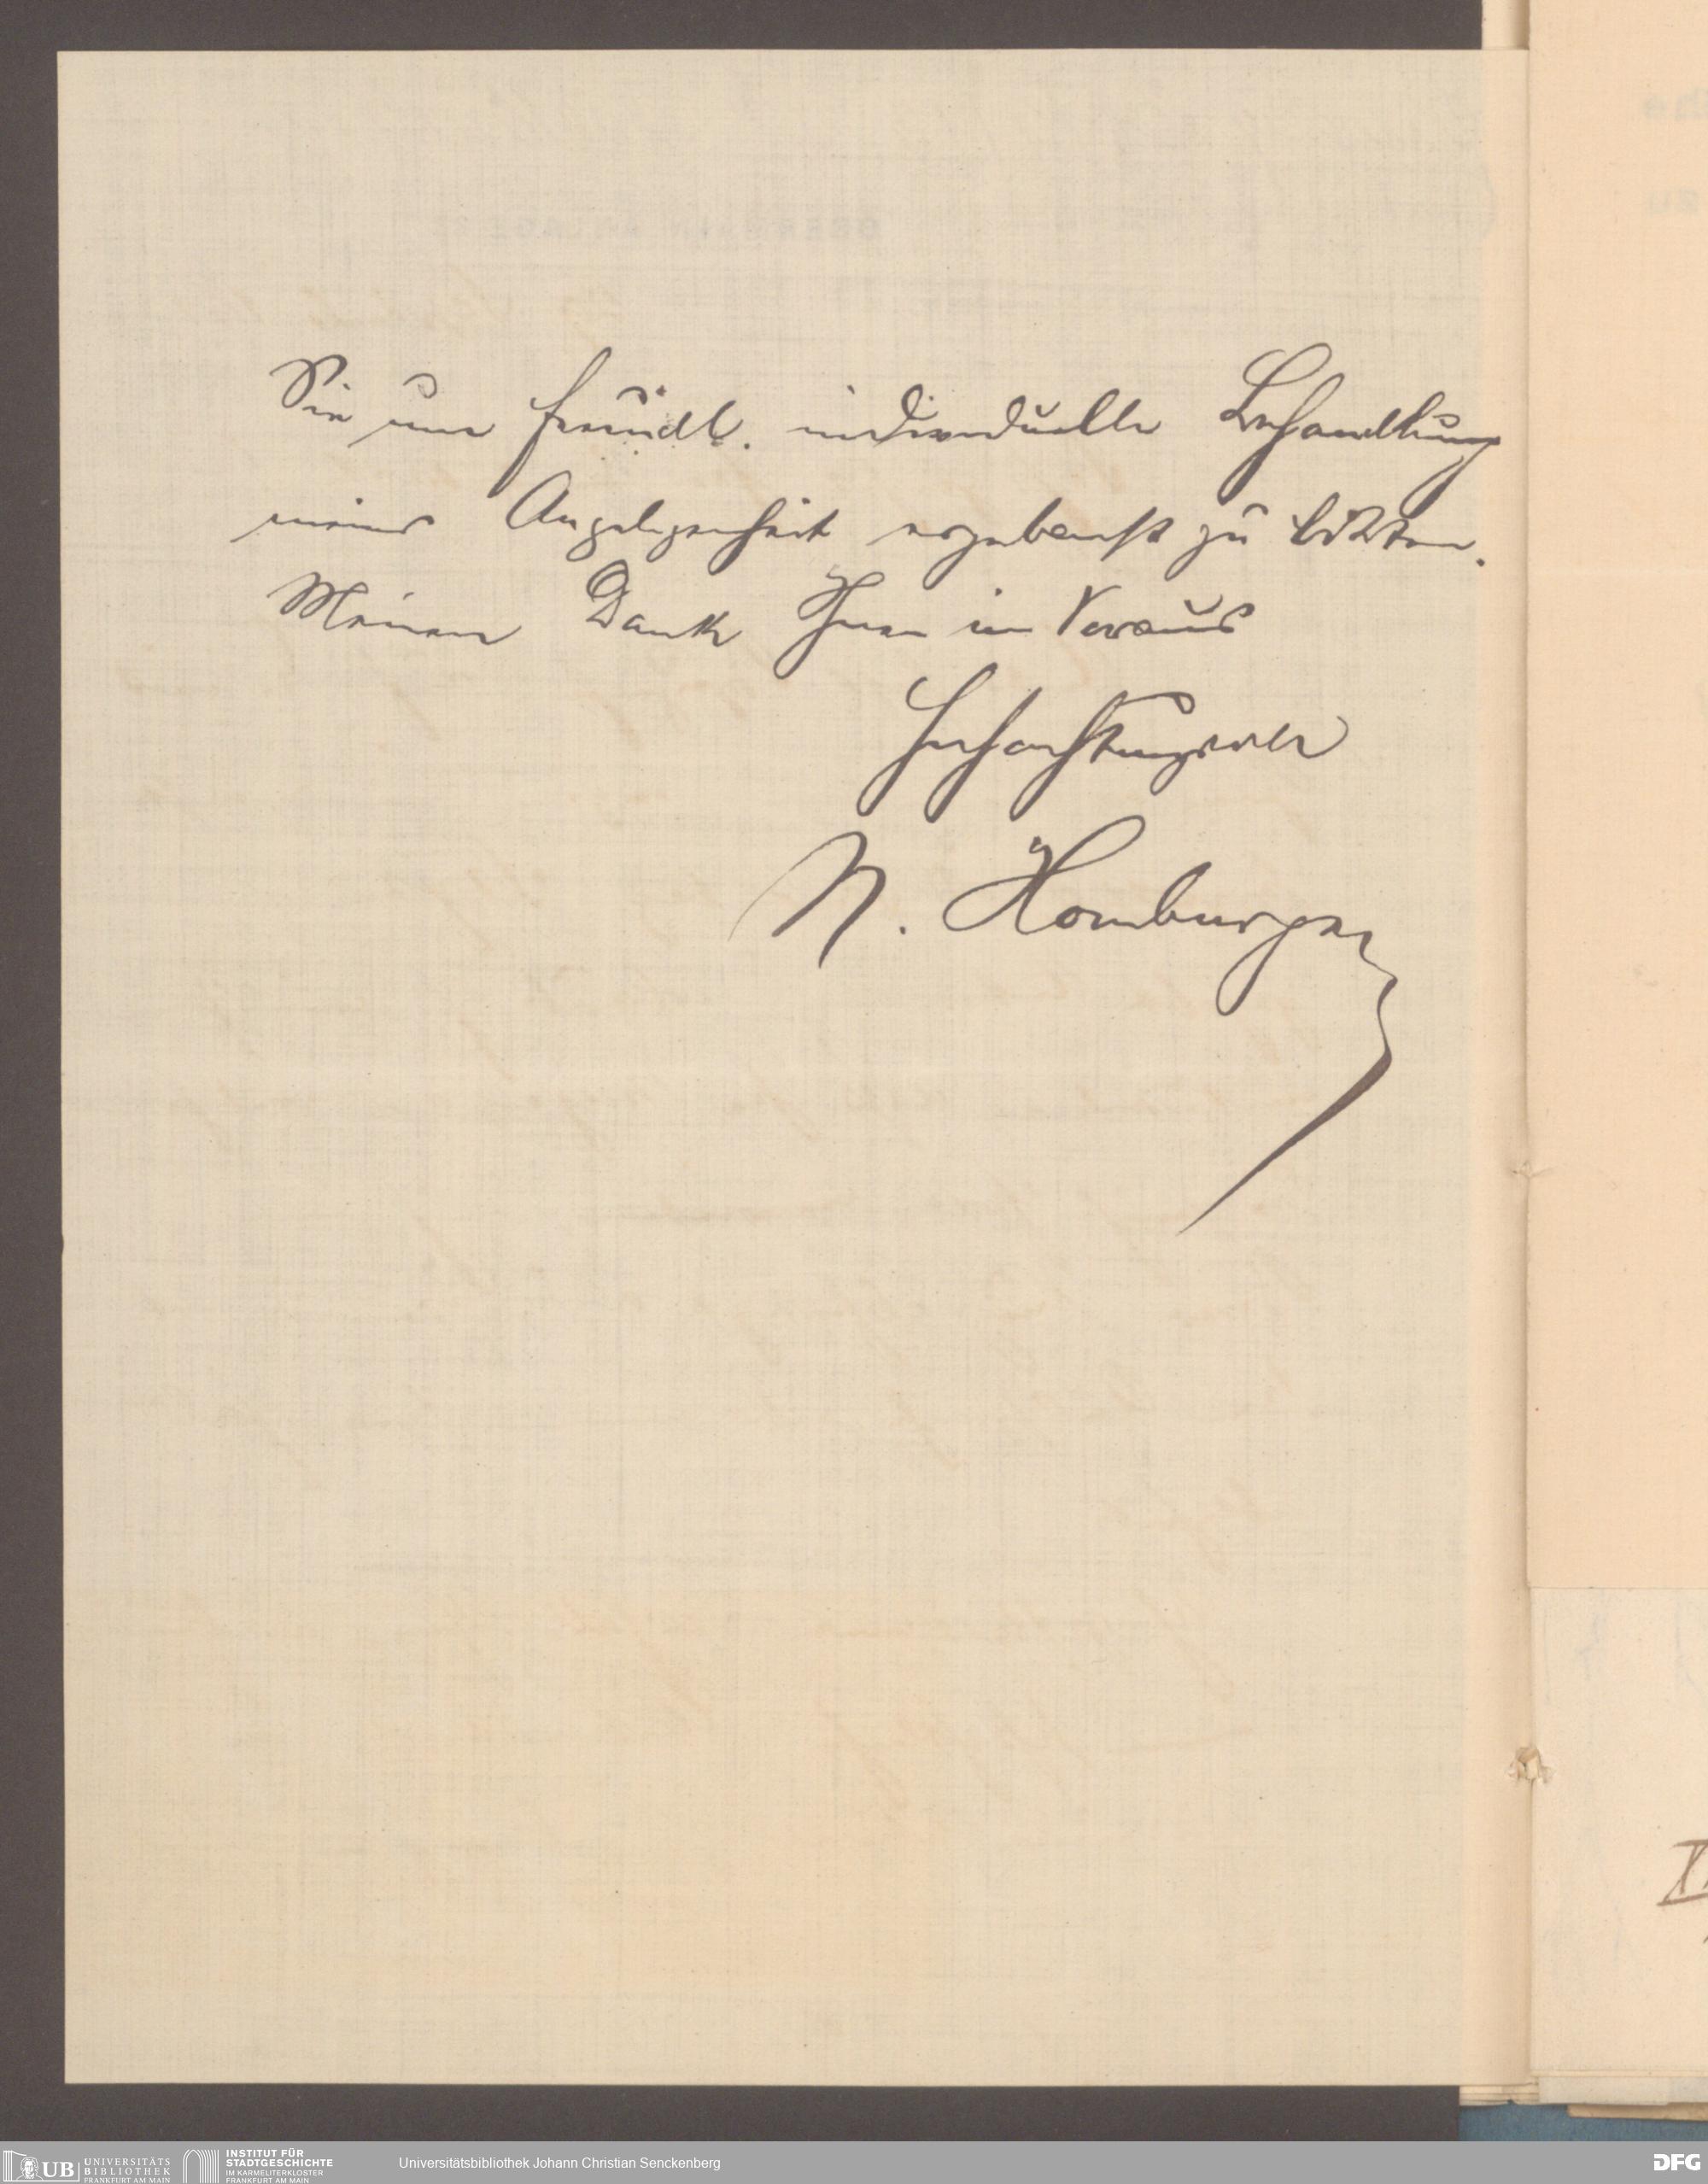 Sie um freundl. individuelle Behandlung
meiner Angelegenheit ergebenst zu bitten.
Meinen Dank Ihnen im Voraus
Hochachtungsvoll
N. Homburger
UB UNIVERSITÄTS BIBLIOTHEK FRANKFURT AM MAIN
INSTITUT FÜR STADTGESCHICHTE IM KARMELITERKLOSTER FRANKFURT AM MAIN
Universitätsbibliothek Johann Christian Senckenberg
DFG